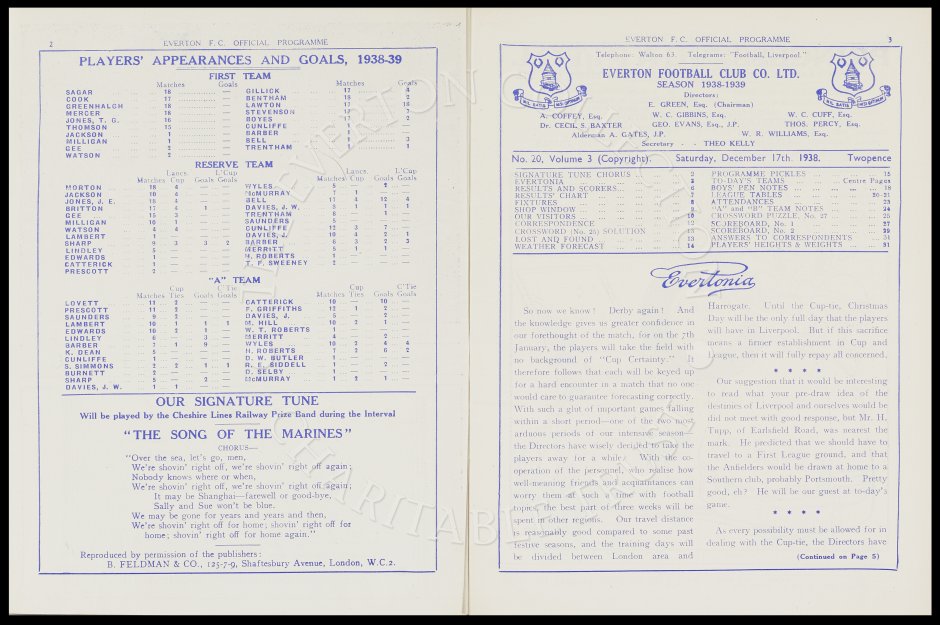 2
EVERTON F.C. OFFICIAL PROGRAMME
PLAYERS' APPEARANCES AND GOALS, 1938-39
FIRST TEAM
Matches Goals Matches Goals
SAGAR 18 — GILLICK 17 4
COOK 17 — BENTHAM 18 2
GREENHALGH 18 — LAWTON 17 18
MERCER 18 — STEVENSON
JONES, T. G. 16 — BOYES 17 2
THOMSON 15 — CUNLIFFE
JACKSON 1 — BARBER 1 —
MILLIGAN 1 — BELL
GEE 2 — TRENTHAM 1 1
WATSON 2 —
RESERVE TEAM
Lancs. L'Cup Lancs. L'Cup
Matches Cup Goals Goals Matches Cup Goals Goals
MORTON 18 4 — — WYLES 5 — 2 —
JACKSON 18 4 — — McMURRAY 1 1 — —
JONES, J. E. 18 4 — — BELL 17 4 12 4
BRITTON 17 4 1 — DAVIES, J. W. 3 1 1 1
GEE 15 3 — — TRENTHAM 8 — 1 —
MILLIGAN 16 1 — — SAUNDERS
WATSON 4 4 — — CUNLIFFE 12 3 7 —
LAMBERT 1 — — — DAVIES, J. 10 4 2 1
SHARP 9 3 3 2 BARBER 6 3 2 3
LINDLEY 5 — — — MERRITT 4 1 1 —
EDWARDS 1 — — — H. ROBERTS 1 — — —
CATTERICK 1 — — — T. F. SWEENEY 2 — — —
PRESCOTT 2 — — —
"A" TEAM
Cup C'Tie Cup C'Tie
Matches Ties Goals Goals Matches Ties Goals Goals
LOVETT 11 2 — — CATTERICK 10 — 10 —
PRESCOTT 11 2 — — F. GRIFFITHS 12 1 2 —
SAUNDERS 9 2 — — DAVIES, J. 5 — 2 —
LAMBERT 10 1 1 1 M. HILL 10 2 1 —
EDWARDS 10 2 1 — W. T. ROBERTS 1 — — —
LINDLEY 6 — 3 — MERRITT 4 — 2 —
BARBER 7 1 9 — WYLES 10 2 4 4
K. DEAN 5 — — — H. ROBERTS 7 2 6 2
CUNLIFFE 1 — — — D. W. BUTLER 1 — — —
S. SIMMONS 2 2 1 1 R. E. SIDDELL 2 — 2 —
BURNETT 2 — — — D. SELBY 1 — — —
SHARP 5 — 2 — McMURRAY 1 2 1 —
DAVIES, J. W. 1 1 — —
OUR SIGNATURE TUNE
Will be played by the Cheshire Lines Railway Prize Band during the Interval
"THE SONG OF THE MARINES"
CHORUS—
"Over the sea, let's go, men,
We're shovin' right off, we're shovin' right off again;
Nobody knows where or when,
We're shovin' right off, we're shovin' right off again;
It may be Shanghai—farewell or good-bye,
Sally and Sue won't be blue.
We may be gone for years and years and then,
We're shovin' right off for home; shovin' right off for
home; shovin' right off for home again."
Reproduced by permission of the publishers:
B. FELDMAN & CO., 125-7-9, Shaftesbury Avenue, London, W.C.2.
EVERTON F.C. OFFICIAL PROGRAMME
3
Telephone: Walton 63. Telegrams: "Football, Liverpool."
EVERTON FOOTBALL CLUB CO. LTD.
SEASON 1938-1939
Directors:
E. GREEN, Esq. (Chairman)
A. COFFEY, Esq. W. C. GIBBINS, Esq. W. C. CUFF, Esq.
Dr. CECIL S. BAXTER GEO. EVANS, Esq., J.P. THOS. PERCY, Esq.
Alderman A. GATES, J.P. W. R. WILLIAMS, Esq.
Secretary - - THEO KELLY
No. 20, Volume 3 (Copyright). Saturday, December 17th. 1938. Twopence
SIGNATURE TUNE CHORUS 2
EVERTONIA 3
RESULTS AND SCORERS 6
RESULTS' CHART 7
FIXTURES
SHOP WINDOW
OUR VISITORS 10
CORRESPONDENCE 12
CROSSWORD (No. 25) SOLUTION 13
LOST AND FOUND 13
WEATHER FORECAST 14
PROGRAMME PICKLES 15
TO-DAY'S TEAMS Centre Pages
BOYS' PEN NOTES 18
LEAGUE TABLES 20-21
ATTENDANCES 23
"A" and "B" TEAM NOTES 24
CROSSWORD PUZZLE, No. 27 25
SCOREBOARD, No. 1 27
SCOREBOARD, No. 2 29
ANSWERS TO CORRESPONDENTS 31
PLAYERS' HEIGHTS & WEIGHTS 31
Evertonia
So now we know! Derby again! And
the knowledge gives us greater confidence in
our forethought of the match, for on the 7th
January, the players will take the field with
no background of "Cup Certainty." It
therefore follows that each will be keyed up
for a hard encounter in a match that no one
would care to guarantee forecasting correctly.
With such a glut of important games falling
within a short period—one of the two most
arduous periods of our intensive season—
the Directors have wisely decided to take the
players away for a while. With the co-
operation of the personnel, who realise how
well-meaning friends and acquaintances can
worry them at such a time with football
topics, the best part of three weeks will be
spent in other regions. Our travel distance
is reasonably good compared to some past
festive seasons, and the training days will
be divided between London area and
Harrogate. Until the Cup-tie, Christmas
Day will be the only full day that the players
will have in Liverpool. But if this sacrifice
means a firmer establishment in Cup and
League, then it will fully repay all concerned.
* * * *
Our suggestion that it would be interesting
to read what your pre-draw idea of the
destinies of Liverpool and ourselves would be
did not meet with good response, but Mr. H.
Tupp, of Earlsfield Road, was nearest the
mark. He predicted that we should have to
travel to a First League ground, and that
the Anfielders would be drawn at home to a
Southern club, probably Portsmouth. Pretty
good, eh? He will be our guest at to-day's
game.
* * * *
As every possibility must be allowed for in
dealing with the Cup-tie, the Directors have
(Continued on Page 5)